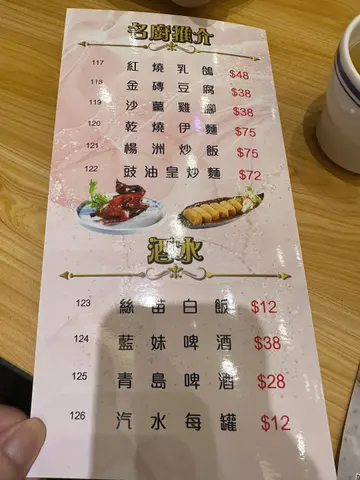 名廚推介
117 紅燒乳鴿 $48
118 金磚豆腐 $38
119 沙薑雞腳 $38
120 乾燒伊麵 $75
121 楊洲炒飯 $75
122 豉油皇炒麵 $72
酒水
123 絲苗白飯 $12
124 藍妹啤酒 $38
125 青島啤酒 $28
126 汽水每罐 $12